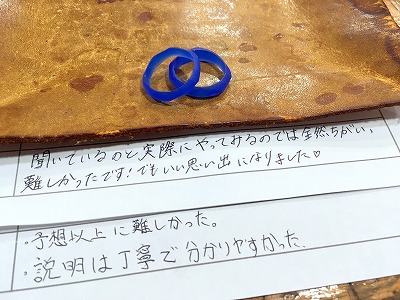 聞いているのと、実際にやってみるのでは全然ちがい、
難しかったです!でもいい思い出になりました♡
・予想以上に難しかった。
・説明は丁寧で分かりやすかった。